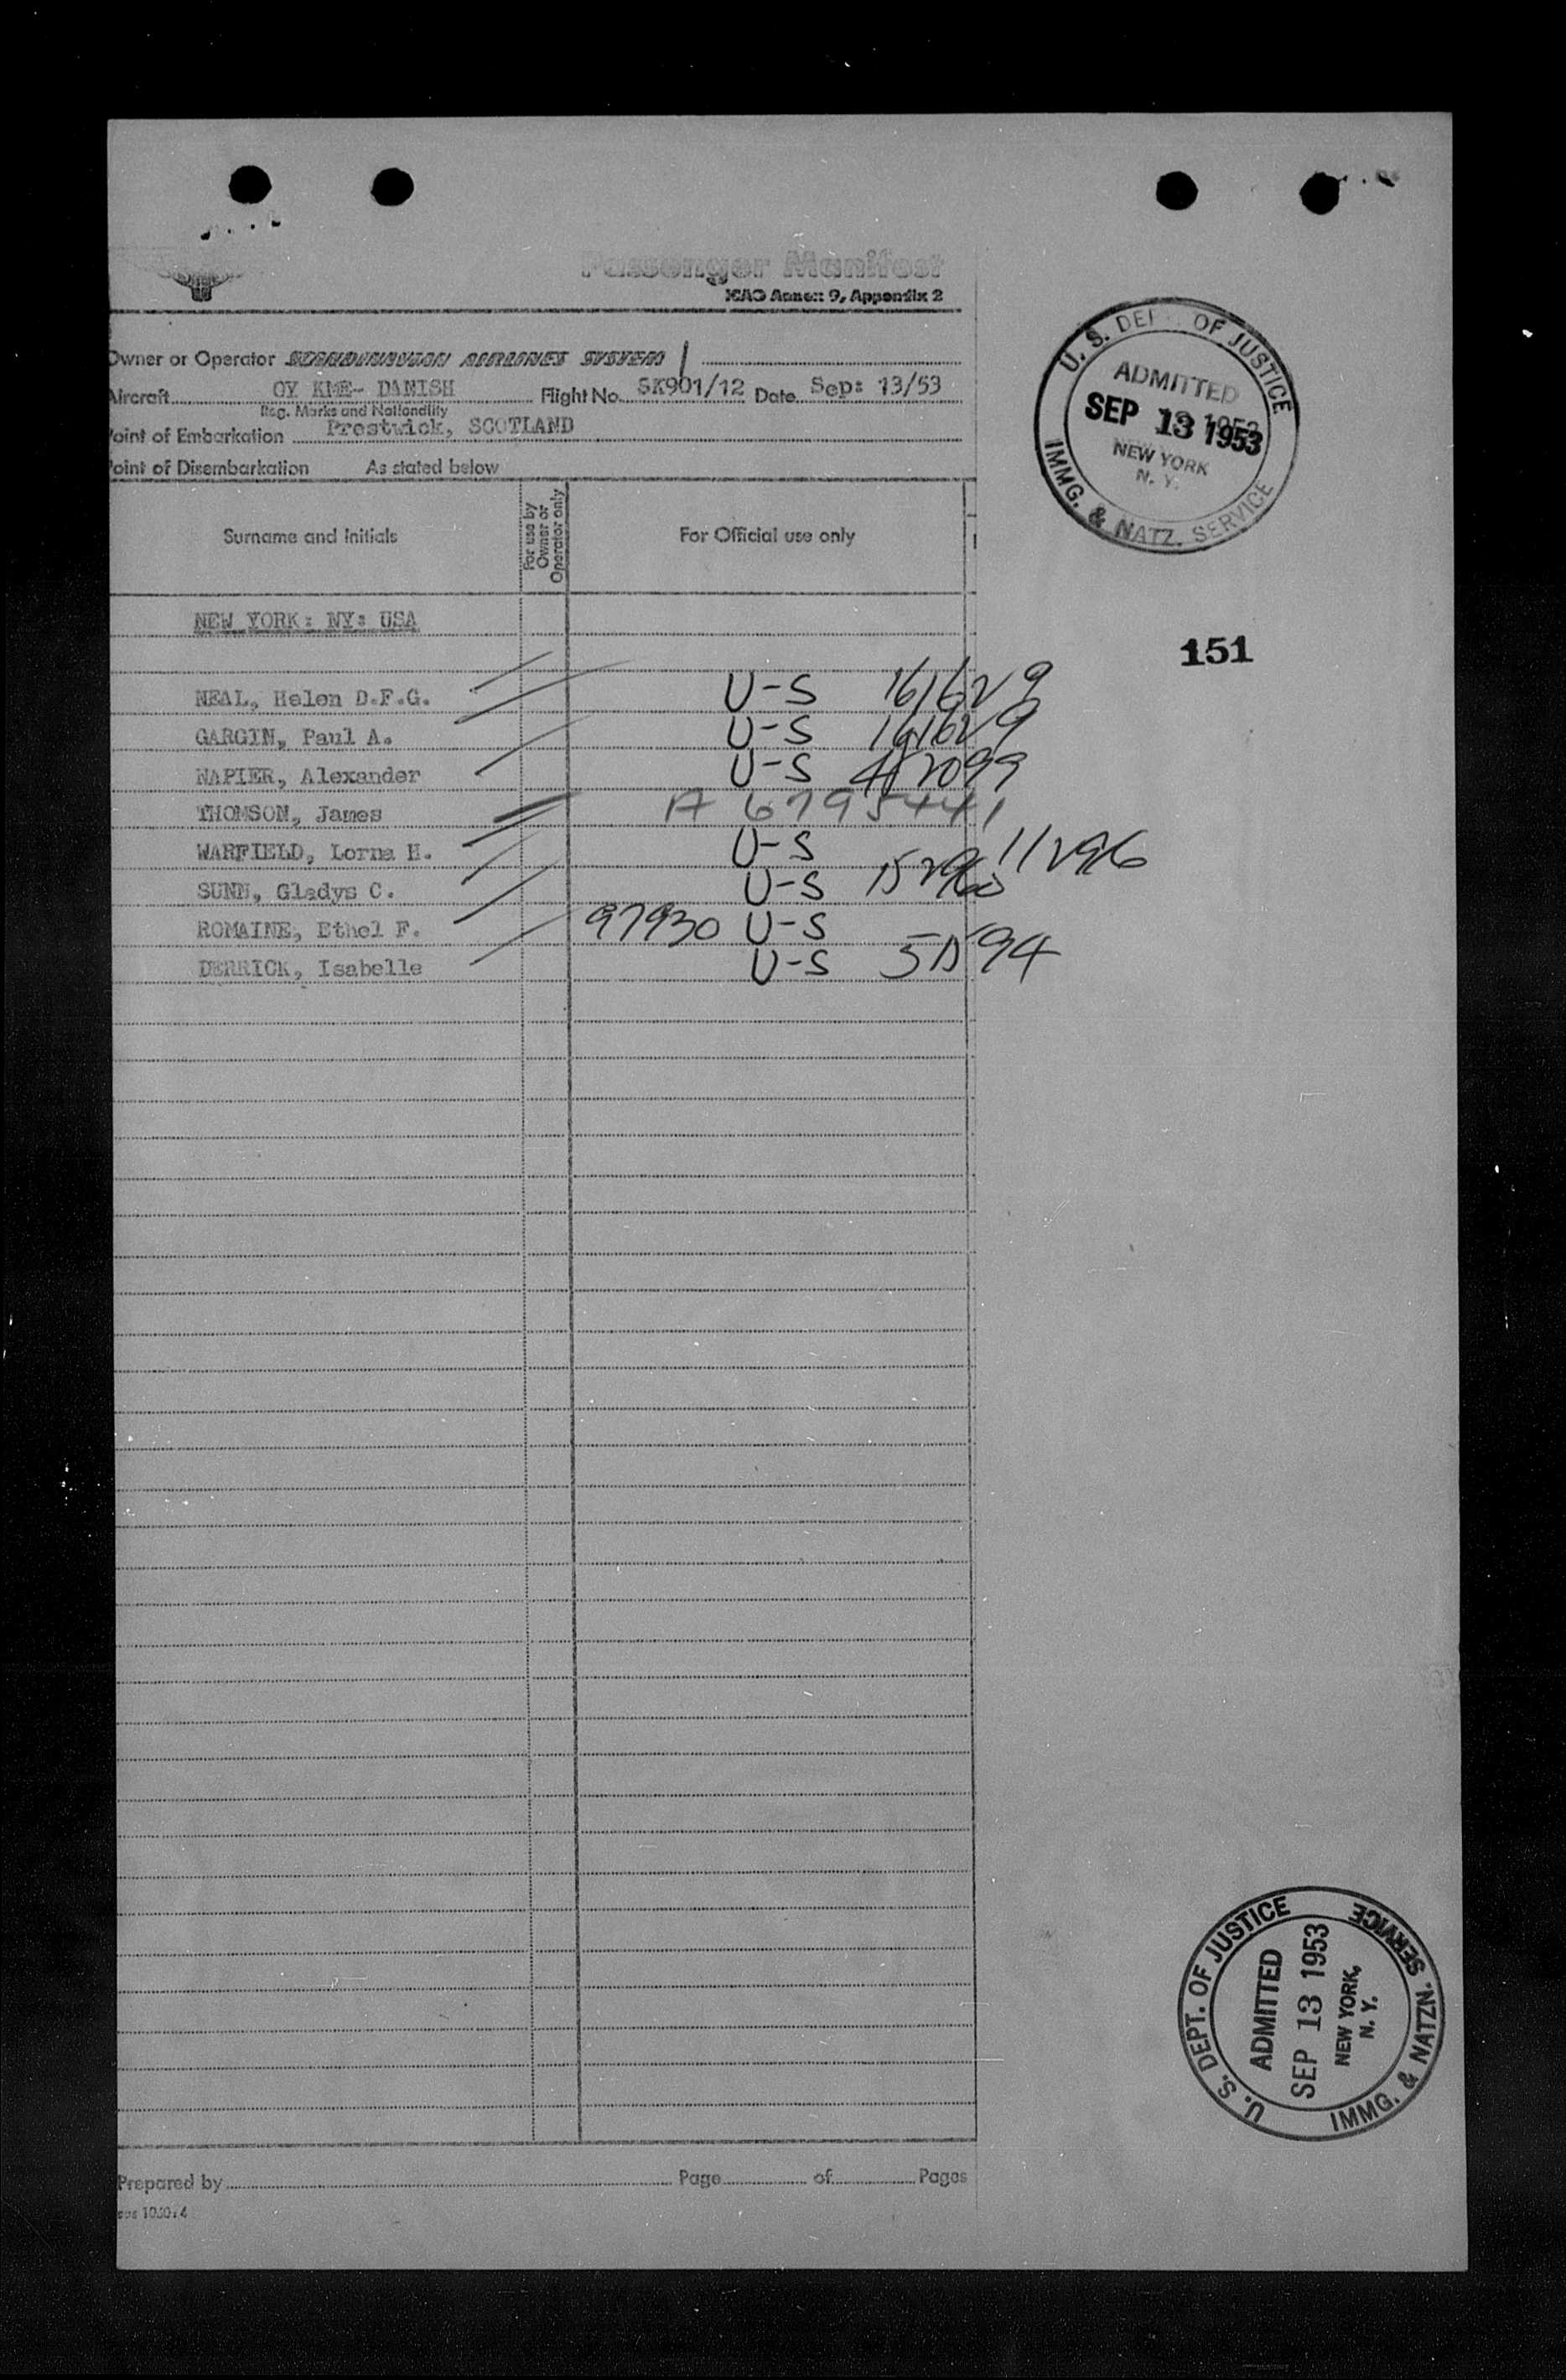 Passenger Manifest
ICAO Annex 9, Appendix 2
Owner or Operator SCANDINAVIAN AIRLINES SYSTEM /
Aircraft OY KME- DANISH Flight No. SK901/12 Date Sep: 13/53
Reg. Marks and Nationality
Point of Embarkation Prestwick, SCOTLAND
Point of Disembarkation As stated below
Surname and initials
For use by Owner or Operator only
For Official use only
NEW YORK: NY: USA
NEAL, Helen D.F.G. U-S 161629
GARGIN, Paul A. U-S 161629
NAPIER, Alexander U-S
THOMSON, James A 6795441
WARFIELD, Lorna H. U-S 11296
SUNN, Gladys C. U-S
ROMAINE, Ethel F. 97930 U-S
DERRICK, Isabelle U-S
U. S. DEPT. OF JUSTICE
ADMITTED
SEP 13 1953
NEW YORK
N. Y.
IMMG. & NATZ. SERVICE
151
U. S. DEPT. OF JUSTICE
ADMITTED
SEP 13 1953
NEW YORK,
N. Y.
IMMG. & NATZN. SERVICE
Prepared by Page of Pages